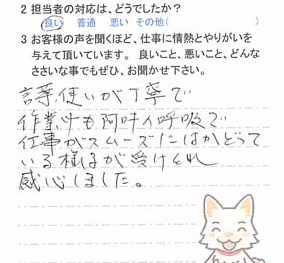 2 担当者の対応は、どうでしたか?
良い 普通 悪い その他(
3 お客様の声を聞くほど、仕事に情熱とやりがいを
与えて頂いています。 良いこと、悪いこと、どんな
ささいな事でもぜひ、お聞かせ下さい。
言葉使いが丁寧で
作業中も阿吽の呼吸で
仕事がスムーズにはかどって
いる様子が受けとれ
感心しました。